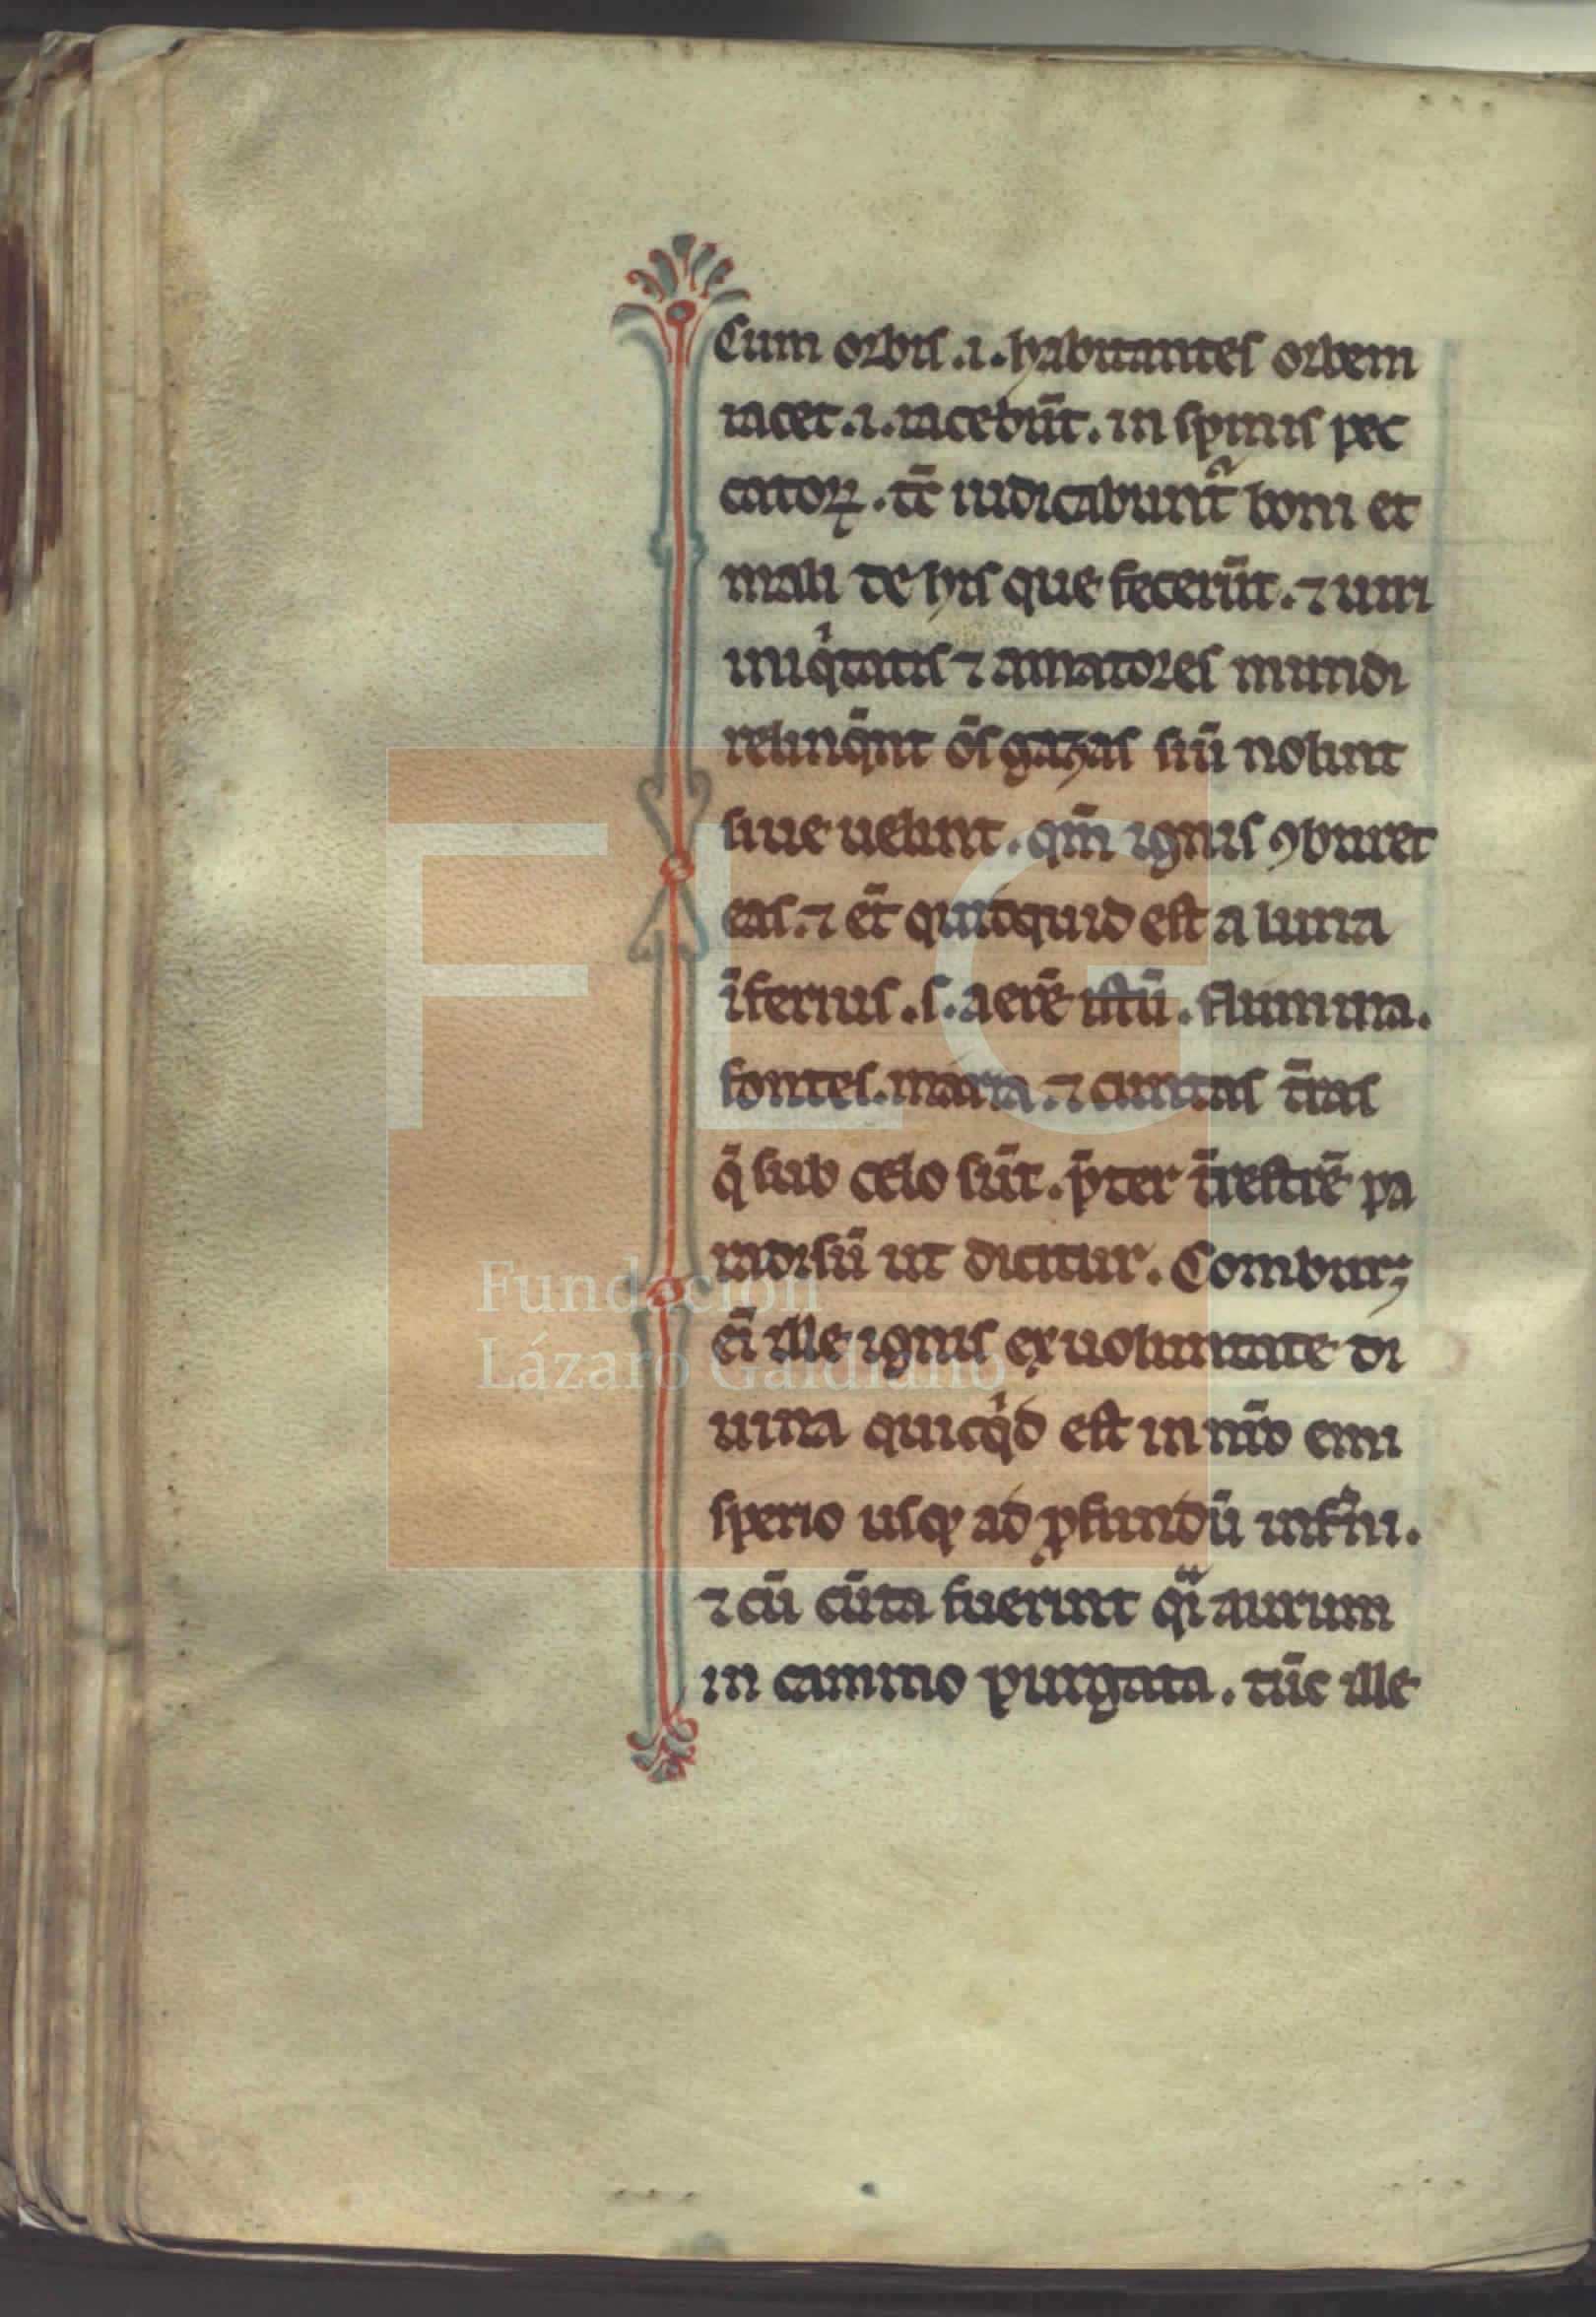 Cum orbis .i. habitantes orbem
iacet .i. iacebūt. in spinis pec
catoꝝ. tc̄ iudicabunt᷑ boni et
mali de hys que fecerūt. ⁊ uiri
iniqͥtatis ⁊ amatores mundi
relinq̄nt ōs gazas siū nolint
siue uelint. qm̄ ignis ꝯburet
eas. ⁊ et̄ quidquid est a luna
īferius .s. aerē istū. flumina.
fontes. maria. ⁊ cunctas t̄ras
q̄ sub celo sūt. p̄ter t̄restrē pa
radisū ut dicitur. Comburꝫ
ei̅ ille ignis ex uoluntate di
uina quicqͥd est in nr̄o emi
sperio usqꝫ ad ꝓfundū inf̄ni.
⁊ cū cūta fuerint qͣi aurum
in camino purgata. tūc ille
FLG
Fundación
Lázaro Galdiano